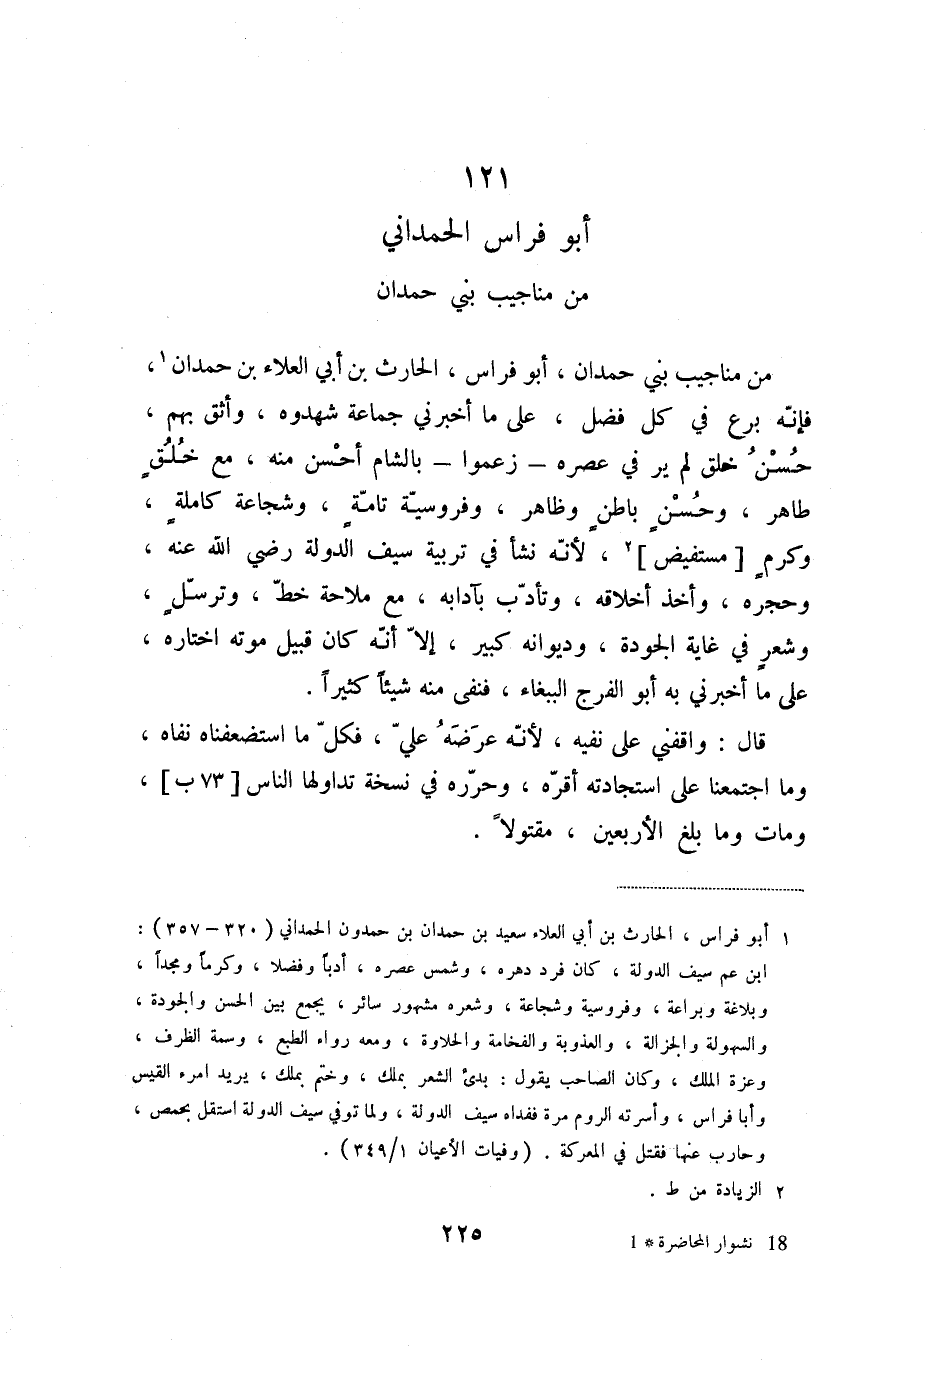 ١٢١
أبو فراس الحمداني
من مناجيب بني حمدان
من مناجيب بني حمدان ، أبو فراس ، الحارث بن أبي العلاء بن حمدان ١ ،
فإنّه برع في كل فضل ، على ما أخبرني جماعة شهدوه ، وأثق بهم ،
حُسْنُ خلق لم ير في عصره – زعموا – بالشام أحْسن منه ، مع خُلُقٍ
طاهر ، وحُسْنٍ باطنٍ وظاهر ، وفروسيّة تامّةٍ ، وشجاعة كاملةٍ ،
وكرمٍ [ مستفيض ] ٢ ، لأنّه نشأ في تربية سيف الدولة رضي الله عنه ،
وحجره ، وأخذ أخلاقه ، وتأدّب بآدابه ، مع ملاحة خطّ ، وترسّلٍ ،
وشعرٍ في غاية الجودة ، وديوانه كبير ، إلاّ أنّه كان قبيل موته اختاره ،
على ما أخبرني به أبو الفرج الببغاء ، فنفى منه شيئاً كثيراً .
قال : واقفني على نفيه ، لأنّه عرَضَهُ عليّ ، فكلّ ما استضعفناه نفاه ،
وما اجتمعنا على استجادته أقرّه ، وحرّره في نسخة تداولها الناس [ ٧٣ ب ] ،
ومات وما بلغ الأربعين ، مقتولاً .
١ أبو فراس ، الحارث بن أبي العلاء سعيد بن حمدان بن حمدون الحمداني ( ٣٢٠ – ٣٥٧ ) :
ابن عم سيف الدولة ، كان فرد دهره ، وشمس عصره ، أدباً وفضلا ، وكرماً ومجداً ،
وبلاغة وبراعة ، وفروسية وشجاعة ، وشعره مشهور سائر ، يجمع بين الحسن والجودة ،
والسهولة والجزالة ، والعذوبة والفخامة والحلاوة ، ومعه رواء الطبع ، وسمة الظرف ،
وعزة الملك ، وكان الصاحب يقول : بدئ الشعر بملك ، وختم بملك ، يريد امرء القيس
وأبا فراس ، وأسرته الروم مرة ففداه سيف الدولة ، ولما توفي سيف الدولة استقل بحمص ،
وحارب عنها فقتل في المعركة . ( وفيات الأعيان ٣٤٩/١ ) .
٢ الزيادة من ط .
18 نشوار المحاضرة * 1
٢٢٥